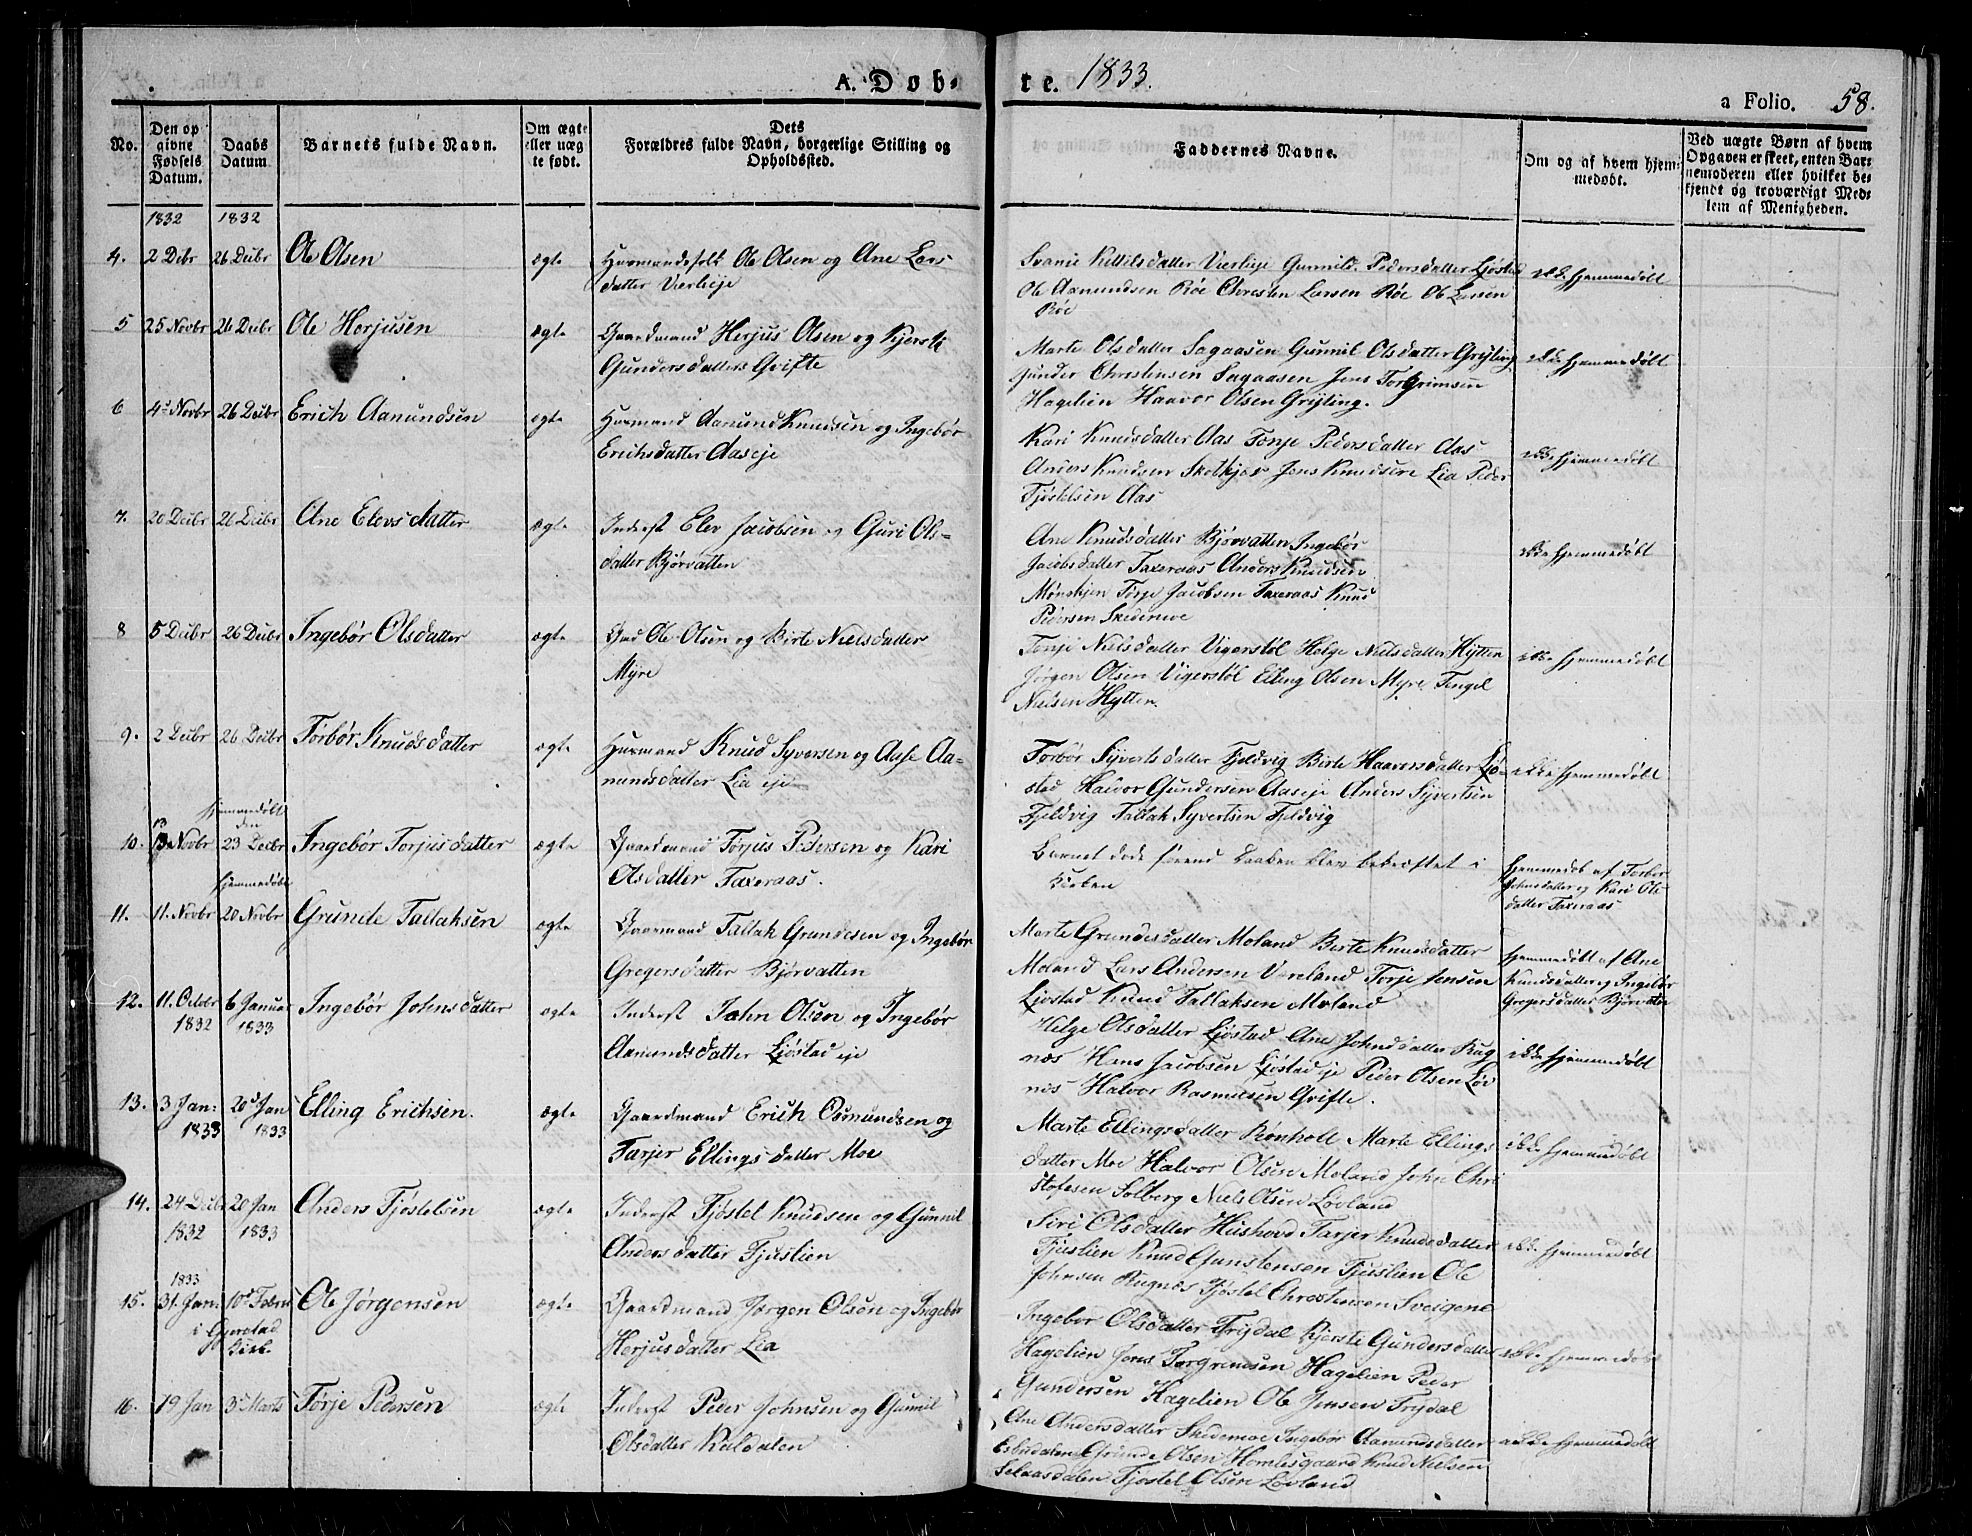 A. Døb-
te. 1833.
a Folio. 58.
No.
Den op
givne
Fødsels
Datum.
Daabs
Datum
Barnets fulde Navn.
Om ægte
eller uæg
te født.
Dets
Forældres fulde Navn, borgerlige Stilling og
Opholdsted.
Faddernes Navne.
Om og af hvem hjem-
medøbt.
Ved uægte Børn af hvem
Opgaven er skeet, enten Bar-
nemoderen eller hvilket be-
kjendt og troværdigt Med-
lem af Menigheden.
1832 1832
4. 2 Debr 26 Decbr Ole Olsen ægte Huusmandsfolk Ole Olsen og Ane Lars-
datter Vierlieje
Svanie Kittilsdatter Vierlieje Gunnild Pedersdatter Ljøstad
Ole Aamundsen Røe Christen Larsen Røe Ole Larsen
Røe
ikke hjemmedøbt
5 25 Novbr 26 Decbr Ole Herjusen ægte Gaardmand Herjus Olsen og Kjersti
Gundersdatter Gvifte
Marte Olsdatter Sagaasen Gunnil Olsdatter Gryting
Gunder Christensen Sagaasen Jens Torgrimsen
Hagelien Haavor Olsen Gryting.
ikke hjemmedøbt
6 4de Novbr 26 Decbr Erich Aamundsen ægte Huusmand Aamund Knudsen og Ingebør
Erichsdatter Aaseje
Kari Knudsdatter Aas Tonje Pedersdatter Aas
Anders Knudsen Sketkjær Jens Knudsen Lia Peder
Tjøstelsen Aas
ikke hjemmedøbt
7. 20 Decbr 26 Decbr Ane Elevsdatter ægte Inderst Elev Jacobsen og Guri Ols-
datter Bjørvatten
Ane Knudsdatter Bjørvatten Ingebør
Jacobsdatter Taxeraas Anders Knudsen
Mønskjen Torje Jacobsen Taxeraas Knud
Pedersen Skedemoe
ikke hjemmedøbt
8 5 Decbr 26 Decbr Ingebør Olsdatter ægte Gmd Ole Olsen og Birte Nielsdatter
Myre
Tonje Nielsdatter Vigerstøl Helge Nielsdatter Hytten
Jørgen Olsen Vigerstøl Elling Olsen Myre Tengel
Nielsen Hytten.
ikke hjemmedøbt
9. 2 Decbr 26 Decbr Torbør Knudsdatter ægte Huusmand Knud Syversen og Aase Aa-
mundsdatter Lia eje
Torbør Syvertsdatter Fjeldvig Birte Haaversdatter Ljø-
stad Halvor Gundersen Aaseje Anders Syvertsen
Fjeldvig Tallak Syvertsen Fjeldvig
ikke hjemmedøbt
hjemmedøbt
den
10. 13 Novbr 23 Decbr Ingebør Torjusdatter ægte Gaardmand Torjus Pedersen og Kari
Olsdatter Taxeraas.
Barnet døde førend Daaben blev bekræftet i
Kirken
hjemmedøb af Torbor
Johnsdatter og Kari Ols
datter Taxeraas
hjemmedøbt
11. 11. Novbr 20 Novbr Grunde Tallaksen ægte Gaarmand Tallak Grundesen og Ingebør
Gregersdatter Bjørvatten
Marte Grundesdatter Moland Berte Knudsdatter
Moland Lars Andersen Voreland Torje Jensen
Ljøstad Knud Tallaksen Moland
hjemmedøbt af Ane
Knudsdatter og Ingebør
Gregersdatter Bjørvatten
12. 11. Octbr 6 Januar Ingebør Johnsdatter ægte Inderst John Olsen og Ingebør
1832 1833
Aamundsdatter Ljøstad eje
Helge Olsdatter Ljøstad Ane Johnsdatter Rug
næs Hans Jacobsen Ljøstad eje Peder Olsen Løv
næs Halvor Rasmusen Gvifte.
ikke hjemmedøbt
13. 3 Jan: 20de Jan Elling Erichsen. ægte Gaardmand Erich Osmundsen og
1833 1833
Tarjer Ellingsdatter Moe
Marte Ellingsdatter Rønholt Marte Ellings
datter Moe Halvor Olsen Moland John Chri
stofesen Solberg Niels Olsen Løvland
ikke hjemmedøbt
14. 24 Decbr 20 Jan Anders Tjøstelsen ægte Inderst Tjøstel Knudsen og Gunnil
1832 1833
Andersdatter Tjuslien
Siri Olsdatter Hushovd Tarjer Knudsdatter
Tjuslien Knud Gunstensen Tjuslien Ole
Johnsen Rugnæs Tjøstel Christensen Sveigene
ikke hjemmedøbt
1833
15. 31. Jan: 10de Febru Ole Jørgensen ægte Gaardmand Jørgen Olsen og Ingebør
i Gjerstad
Kirk.
Herjusdatter Lia
Ingebor Olsdatter Trydal Kjerste Gundersdatter
Hagelien Jens Torgrimsen Hagelien Peder
Gundersen Hagelien Ole Jensen Trydal
ikke hjemmedøbt
16. 19 Jan 3de Marts Torje Pedersen ægte Inderst Peder Johnsen og Gunnil
Olsdatter Kaldalen
Ane Andersdatter Skedemoe Ingebør Aamundsdatter
Esbudalen Grunde Olsen Homlesgaard Knud Nielsen
Selaasdalen Tjøstel Olsen Løvland
ikke hjemmedøbt